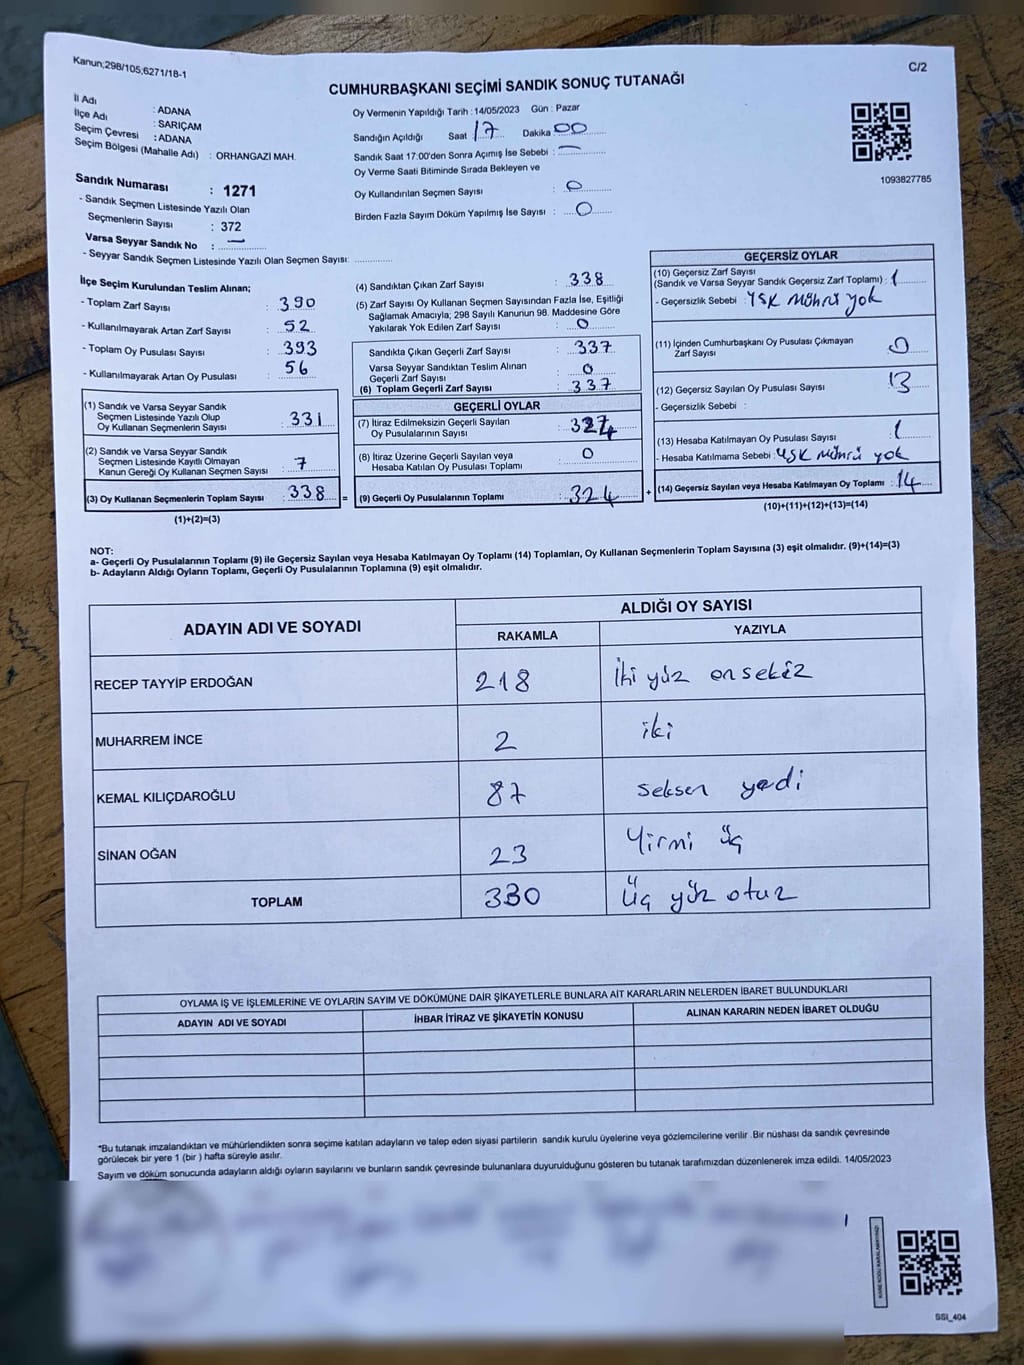 Kanun;298/105,6271/18-1
C/2
CUMHURBAŞKANI SEÇİMİ SANDIK SONUÇ TUTANAĞI
İl Adı : ADANA
İlçe Adı : SARIÇAM
Seçim Çevresi : ADANA
Seçim Bölgesi (Mahalle Adı) : ORHANGAZİ MAH.
Sandık Numarası : 1271
- Sandık Seçmen Listesinde Yazılı Olan
Seçmenlerin Sayısı : 372
Varsa Seyyar Sandık No : —
- Seyyar Sandık Seçmen Listesinde Yazılı Olan Seçmen Sayısı: ............
Oy Vermenin Yapıldığı Tarih : 14/05/2023 Gün : Pazar
Sandığın Açıldığı Saat 17 Dakika 00
Sandık Saat 17:00'den Sonra Açımış İse Sebebi : —
Oy Verme Saati Bitiminde Sırada Bekleyen ve
Oy Kullandırılan Seçmen Sayısı : 0
Birden Fazla Sayım Döküm Yapılmış İse Sayısı : 0
1093827785
İlçe Seçim Kurulundan Teslim Alınan;
- Toplam Zarf Sayısı : 390
- Kullanılmayarak Artan Zarf Sayısı : 52
- Toplam Oy Pusulası Sayısı : 393
- Kullanılmayarak Artan Oy Pusulası : 56
(1) Sandık ve Varsa Seyyar Sandık
Seçmen Listesinde Yazılı Olup
Oy Kullanan Seçmenlerin Sayısı : 331
(2) Sandık ve Varsa Seyyar Sandık
Seçmen Listesinde Kayıtlı Olmayan
Kanun Gereği Oy Kullanan Seçmen Sayısı : 7
(3) Oy Kullanan Seçmenlerin Toplam Sayısı : 338 =
(1)+(2)=(3)
(4) Sandıktan Çıkan Zarf Sayısı : 338
(5) Zarf Sayısı Oy Kullanan Seçmen Sayısından Fazla İse, Eşitliği
Sağlamak Amacıyla; 298 Sayılı Kanunun 98. Maddesine Göre
Yakılarak Yok Edilen Zarf Sayısı : 0
Sandıkta Çıkan Geçerli Zarf Sayısı : 337
Varsa Seyyar Sandıktan Teslim Alınan
Geçerli Zarf Sayısı : 0
(6) Toplam Geçerli Zarf Sayısı : 337
GEÇERLİ OYLAR
(7) İtiraz Edilmeksizin Geçerli Sayılan
Oy Pusulalarının Sayısı : 324
(8) İtiraz Üzerine Geçerli Sayılan veya
Hesaba Katılan Oy Pusulası Toplamı : 0
(9) Geçerli Oy Pusulalarının Toplamı : 324 +
GEÇERSİZ OYLAR
(10) Geçersiz Zarf Sayısı
(Sandık ve Varsa Seyyar Sandık Geçersiz Zarf Toplamı) : 1
- Geçersizlik Sebebi : YSK Mührü yok
(11) İçinden Cumhurbaşkanı Oy Pusulası Çıkmayan
Zarf Sayısı : 0
(12) Geçersiz Sayılan Oy Pusulası Sayısı : 13
- Geçersizlik Sebebi :
(13) Hesaba Katılmayan Oy Pusulası Sayısı : 1
- Hesaba Katılmama Sebebi : YSK Mührü yok
(14) Geçersiz Sayılan veya Hesaba Katılmayan Oy Toplamı : 14
(10)+(11)+(12)+(13)=(14)
NOT:
a- Geçerli Oy Pusulalarının Toplamı (9) ile Geçersiz Sayılan veya Hesaba Katılmayan Oy Toplamı (14) Toplamları, Oy Kullanan Seçmenlerin Toplam Sayısına (3) eşit olmalıdır. (9)+(14)=(3)
b- Adayların Aldığı Oyların Toplamı, Geçerli Oy Pusulalarının Toplamına (9) eşit olmalıdır.
ADAYIN ADI VE SOYADI
ALDIĞI OY SAYISI
RAKAMLA YAZIYLA
RECEP TAYYİP ERDOĞAN 218 İki yüz onsekiz
MUHARREM İNCE 2 iki
KEMAL KILIÇDAROĞLU 87 seksen yedi
SİNAN OĞAN 23 Yirmi üç
TOPLAM 330 Üç yüz otuz
OYLAMA İŞ VE İŞLEMLERİNE VE OYLARIN SAYIM VE DÖKÜMÜNE DAİR ŞİKAYETLERLE BUNLARA AİT KARARLARIN NELERDEN İBARET BULUNDUKLARI
ADAYIN ADI VE SOYADI İHBAR İTİRAZ VE ŞİKAYETİN KONUSU ALINAN KARARIN NEDEN İBARET OLDUĞU
*Bu tutanak imzalandıktan ve mühürlendikten sonra seçime katılan adayların ve talep eden siyasi partilerin sandık kurulu üyelerine veya gözlemcilerine verilir .Bir nüshası da sandık çevresinde
görülecek bir yere 1 (bir ) hafta süreyle asılır.
Sayım ve döküm sonucunda adayların aldığı oyların sayılarını ve bunların sandık çevresinde bulunanlara duyurulduğunu gösteren bu tutanak tarafımızdan düzenlenerek imza edildi. 14/05/2023
SSI_404